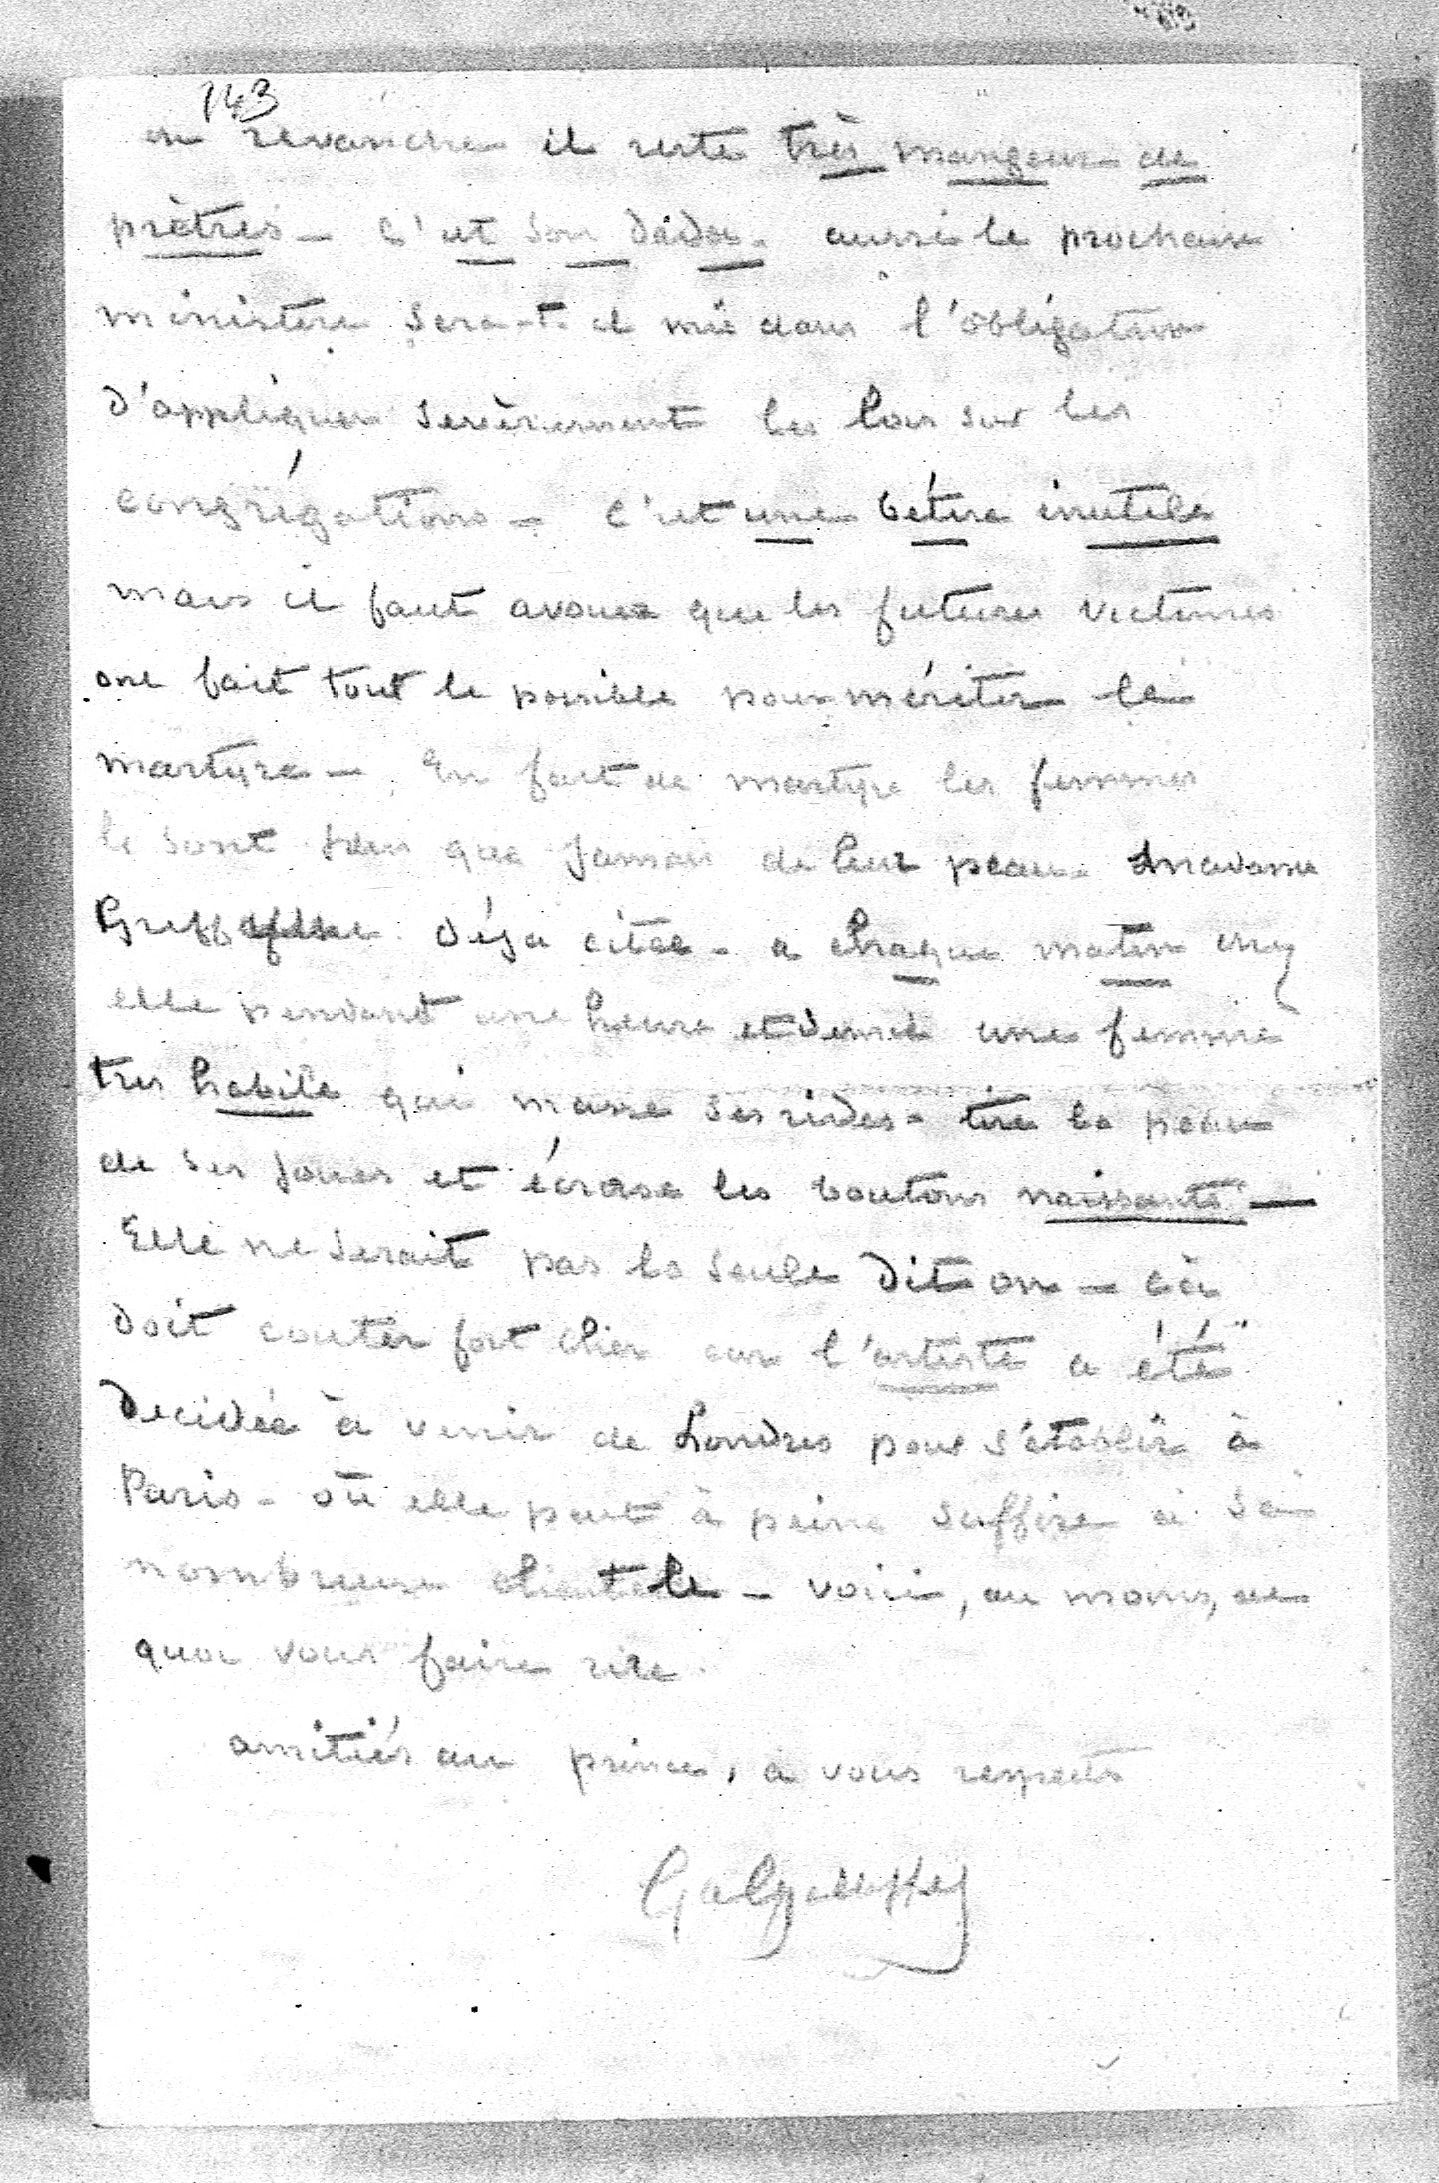 143
en revanche il reste très mangeur de
prètres - c'est son dada. aussi le prochain
ministère sera-t-il mis dans l'obligation
d'appliquer sevèrement les lois sur les
congrégations - c'est une bétise inutile
mais il faut avouer que les futures victimes
ont fait tout le possible pour mériter le
martyre - En fait de martyre les femmes
le sont plus que jamais de leur peau. Madame
Greffulhe déja citée - a chaque matin chez
elle pendant une heure et demie une femme
tres habile qui masse ses rides - tire la peau
de ses joues et écrase les boutons naissants -
Elle ne serait pas la seule dit on - cà
doit couter fort cher car l'artiste a été
decidée à venir de Londres pour s'établir à
Paris - où elle peut à peine suffire à sa
nombreuse clientele - voici, au moins, de
quoi vous faire rire.
amitiés au prince, à vous respects
Galliffet